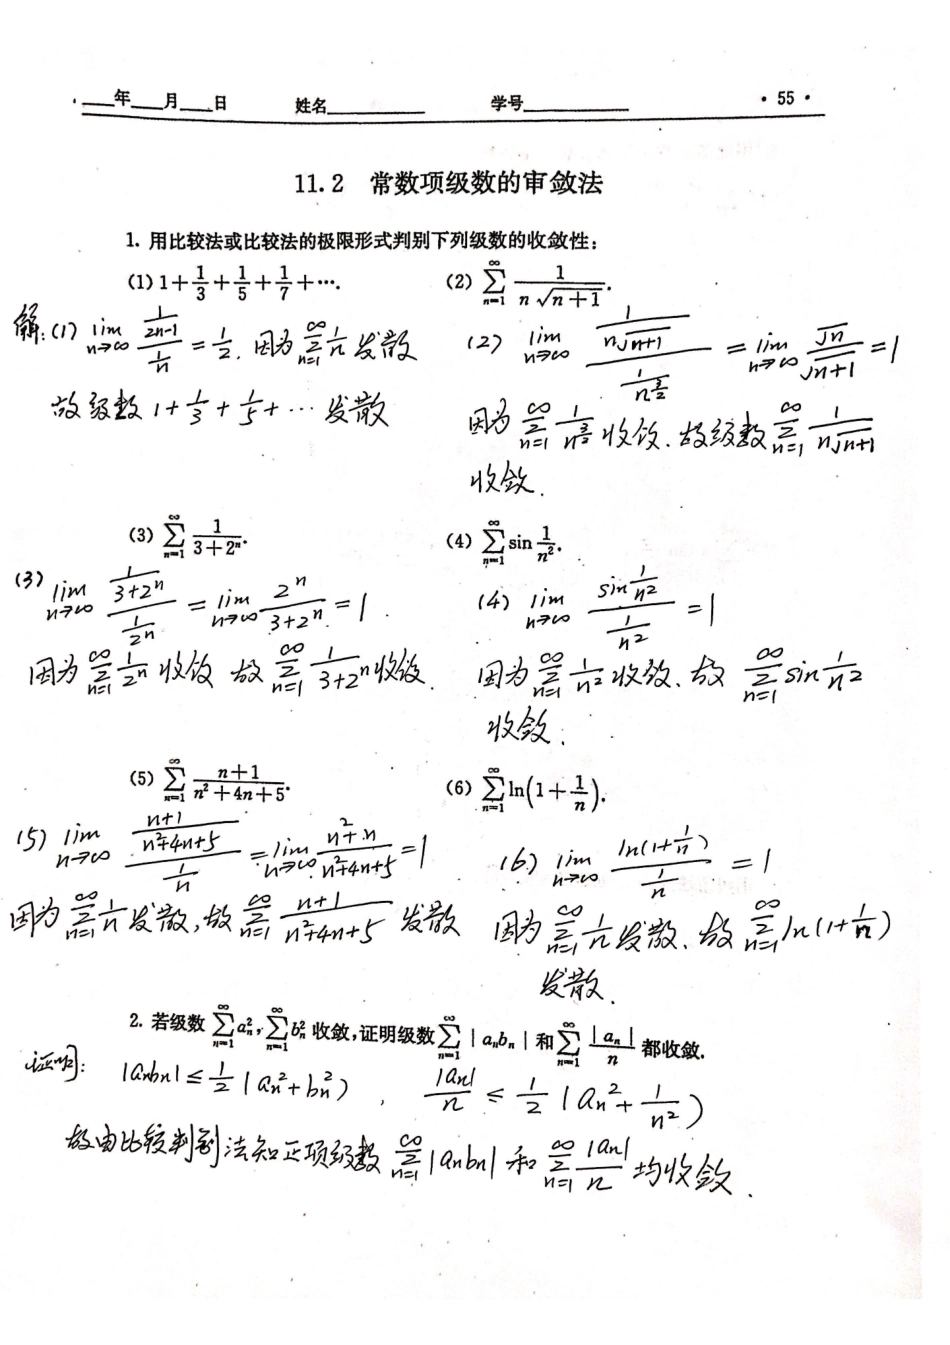 年 月 日 姓名 学号 · 55 ·
11.2 常数项级数的审敛法
1. 用比较法或比较法的极限形式判别下列级数的收敛性：
(1) 1+\frac{1}{3}+\frac{1}{5}+\frac{1}{7}+⋯. (2) \sum_{n=1}^{∞} \frac{1}{n\sqrt{n+1}}.
解:(1) \lim_{n→∞} \frac{\frac{1}{2n-1}}{\frac{1}{n}} = \frac{1}{2}. 因为 \sum_{n=1}^{∞} \frac{1}{n} 发散
故级数 1+\frac{1}{3}+\frac{1}{5}+⋯ 发散
(2) \lim_{n→∞} \frac{\frac{1}{n\sqrt{n+1}}}{\frac{1}{n^{\frac{3}{2}}}} = \lim_{n→∞} \frac{\sqrt{n}}{\sqrt{n+1}} = 1
因为 \sum_{n=1}^{∞} \frac{1}{n^{\frac{3}{2}}} 收敛. 故级数 \sum_{n=1}^{∞} \frac{1}{n\sqrt{n+1}}
收敛.
(3) \sum_{n=1}^{∞} \frac{1}{3+2^n}. (4) \sum_{n=1}^{∞} \sin\frac{1}{n^2}.
(3) \lim_{n→∞} \frac{\frac{1}{3+2^n}}{\frac{1}{2^n}} = \lim_{n→∞} \frac{2^n}{3+2^n} = 1.
因为 \sum_{n=1}^{∞} \frac{1}{2^n} 收敛 故 \sum_{n=1}^{∞} \frac{1}{3+2^n} 收敛.
(4) \lim_{n→∞} \frac{\sin\frac{1}{n^2}}{\frac{1}{n^2}} = 1
因为 \sum_{n=1}^{∞} \frac{1}{n^2} 收敛. 故 \sum_{n=1}^{∞} \sin\frac{1}{n^2}
收敛.
(5) \sum_{n=1}^{∞} \frac{n+1}{n^2+4n+5}. (6) \sum_{n=1}^{∞} \ln(1+\frac{1}{n}).
(5) \lim_{n→∞} \frac{\frac{n+1}{n^2+4n+5}}{\frac{1}{n}} = \lim_{n→∞} \frac{n^2+n}{n^2+4n+5} = 1
因为 \sum_{n=1}^{∞} \frac{1}{n} 发散, 故 \sum_{n=1}^{∞} \frac{n+1}{n^2+4n+5} 发散
(6) \lim_{n→∞} \frac{\ln(1+\frac{1}{n})}{\frac{1}{n}} = 1
因为 \sum_{n=1}^{∞} \frac{1}{n} 发散. 故 \sum_{n=1}^{∞} \ln(1+\frac{1}{n})
发散.
2. 若级数 \sum_{n=1}^{∞} a_n^2, \sum_{n=1}^{∞} b_n^2 收敛,证明级数 \sum_{n=1}^{∞} |a_nb_n| 和 \sum_{n=1}^{∞} \frac{|a_n|}{n} 都收敛.
证明: |a_nb_n| ≤ \frac{1}{2}(a_n^2+b_n^2), \frac{|a_n|}{n} ≤ \frac{1}{2}(a_n^2+\frac{1}{n^2})
故由比较判别法知正项级数 \sum_{n=1}^{∞} |a_nb_n| 和 \sum_{n=1}^{∞} \frac{|a_n|}{n} 均收敛.